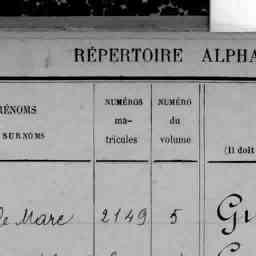 RÉPERTOIRE ALPHA
RÉNOMS
SURNOMS
NUMÉROS
ma-
tricules
NUMÉRO
du
volume
(Il doit
de Marc 2149 5 Gu